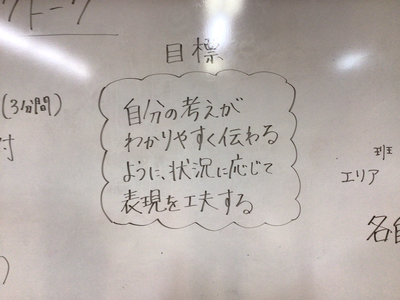 クトーク
目標
(3分間)
自分の考えが
わかりやすく伝わる
ように、状況に応じて
表現を工夫する
付
班
エリア
各自
)